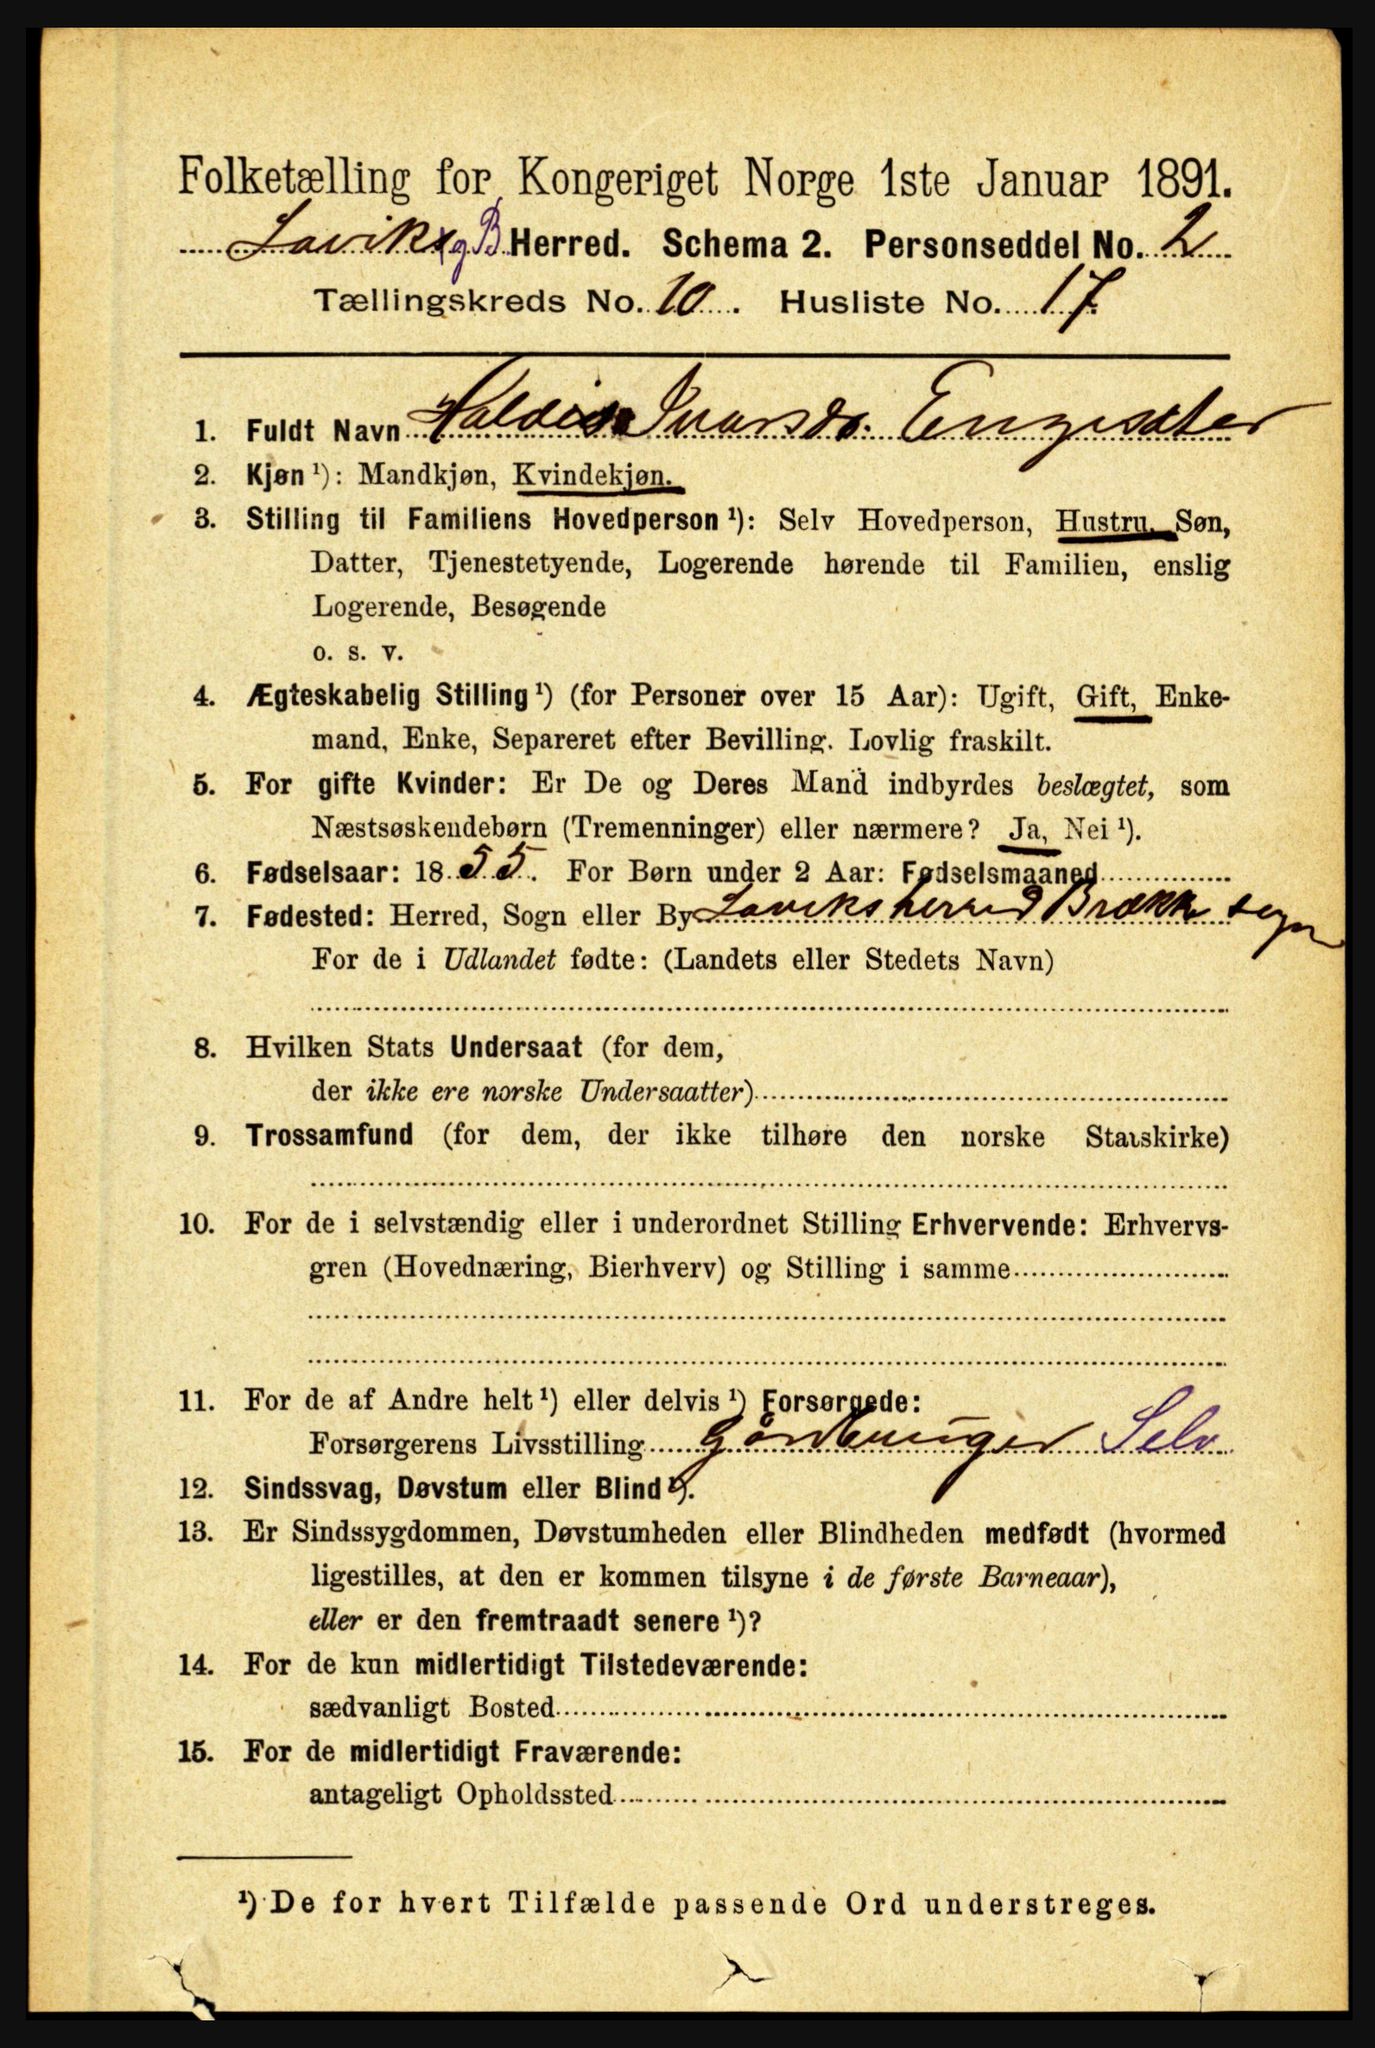 Folketælling for Kongeriget Norge 1ste Januar 1891.
Lavik og B. Herred. Schema 2. Personseddel No. 2
Tællingskreds No. 10. Husliste No. 17.
1. Fuldt Navn Ivarsdr. Engesæter
2. Kjøn ¹): Mandkjøn, Kvindekjøn.
3. Stilling til Familiens Hovedperson ¹): Selv Hovedperson, Hustru, Søn,
Datter, Tjenestetyende, Logerende hørende til Familien, enslig
Logerende, Besøgende
o. s. v.
4. Ægteskabelig Stilling ¹) (for Personer over 15 Aar): Ugift, Gift, Enke-
mand, Enke, Separeret efter Bevilling. Lovlig fraskilt.
5. For gifte Kvinder: Er De og Deres Mand indbyrdes beslægtet, som
Næstsøskendebørn (Tremenninger) eller nærmere? Ja, Nei ¹).
6. Fødselsaar: 1855. For Børn under 2 Aar: Fødselsmaaned
7. Fødested: Herred, Sogn eller By Laviks herred Brække sogn
For de i Udlandet fødte: (Landets eller Stedets Navn)
8. Hvilken Stats Undersaat (for dem,
der ikke ere norske Undersaatter)
9. Trossamfund (for dem, der ikke tilhøre den norske Statskirke)
10. For de i selvstændig eller i underordnet Stilling Erhvervende: Erhvervs-
gren (Hovednæring, Bierhverv) og Stilling i samme
11. For de af Andre helt ¹) eller delvis ¹) Forsørgede:
Forsørgerens Livsstilling Gårdbruger Selv
12. Sindssvag, Døvstum eller Blind ¹).
13. Er Sindssygdommen, Døvstumheden eller Blindheden medfødt (hvormed
ligestilles, at den er kommen tilsyne i de første Barneaar),
eller er den fremtraadt senere ¹)?
14. For de kun midlertidigt Tilstedeværende:
sædvanligt Bosted
15. For de midlertidigt Fraværende:
antageligt Opholdssted
¹) De for hvert Tilfælde passende Ord understreges.